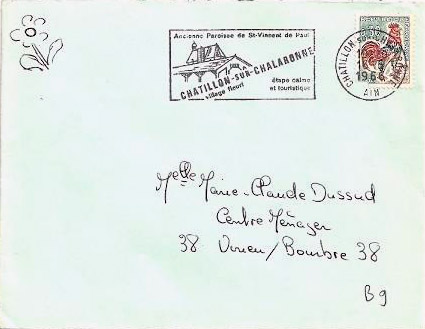 Ancienne Paroisse de St-Vincent de Paul
CHATILLON-SUR-CHALARONNE
village fleuri
étape calme
et touristique
CHATILLON-SUR-CHALARONNE
1966
AIN
Melle Marie-Claude Dussud
Centre Ménager
38 Virieu/Bourbre 38
B9